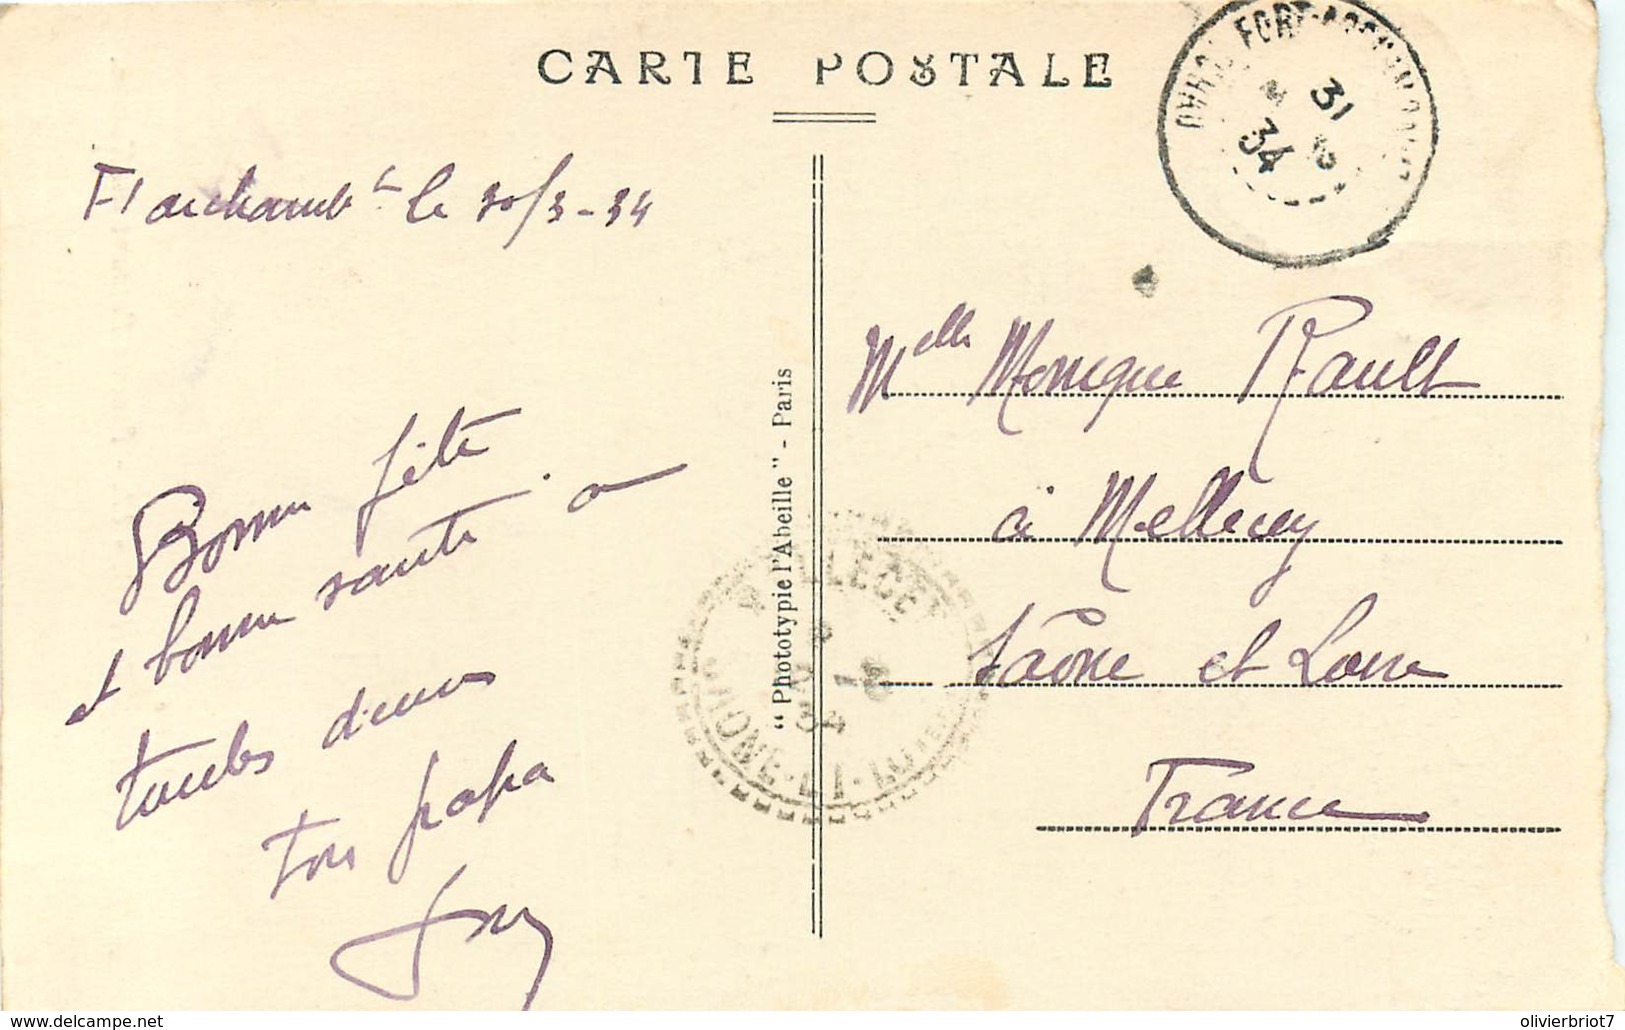 CARTE POSTALE
FORT-ARCHAMBAULT
31
34
Ft Archambt le 30/3-34
Melle Monique Rault
à Mellecey
Saône et Loire
France
Bonne fête
et bonne santé à
toutes deux
ton papa
"Phototypie l'Abeille" - Paris
MELLECEY
34
SAONE-ET-LOIRE
www.delcampe.net
olivierbriot7